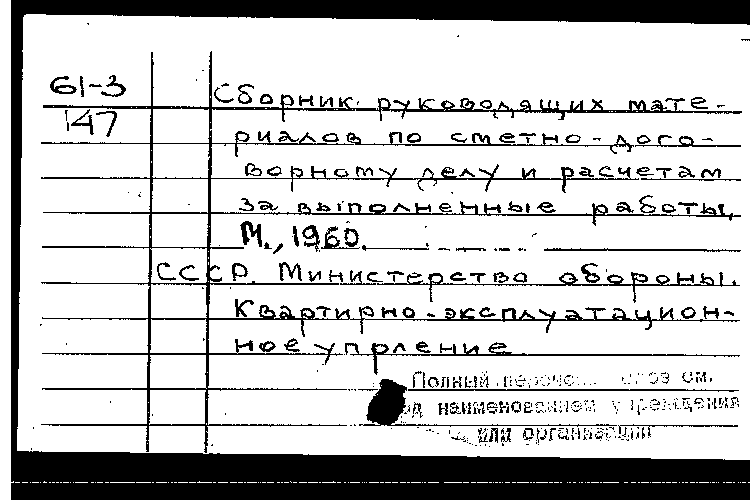 61-3
147
Сборник руководящих мате-
риалов по сметно-дого-
ворному делу и расчетам
за выполненные работы,
М., 1960.
СССР. Министерство обороны.
Квартирно-эксплуатацион-
ное упрление
Полный см.
наименованием учреждения
или организации